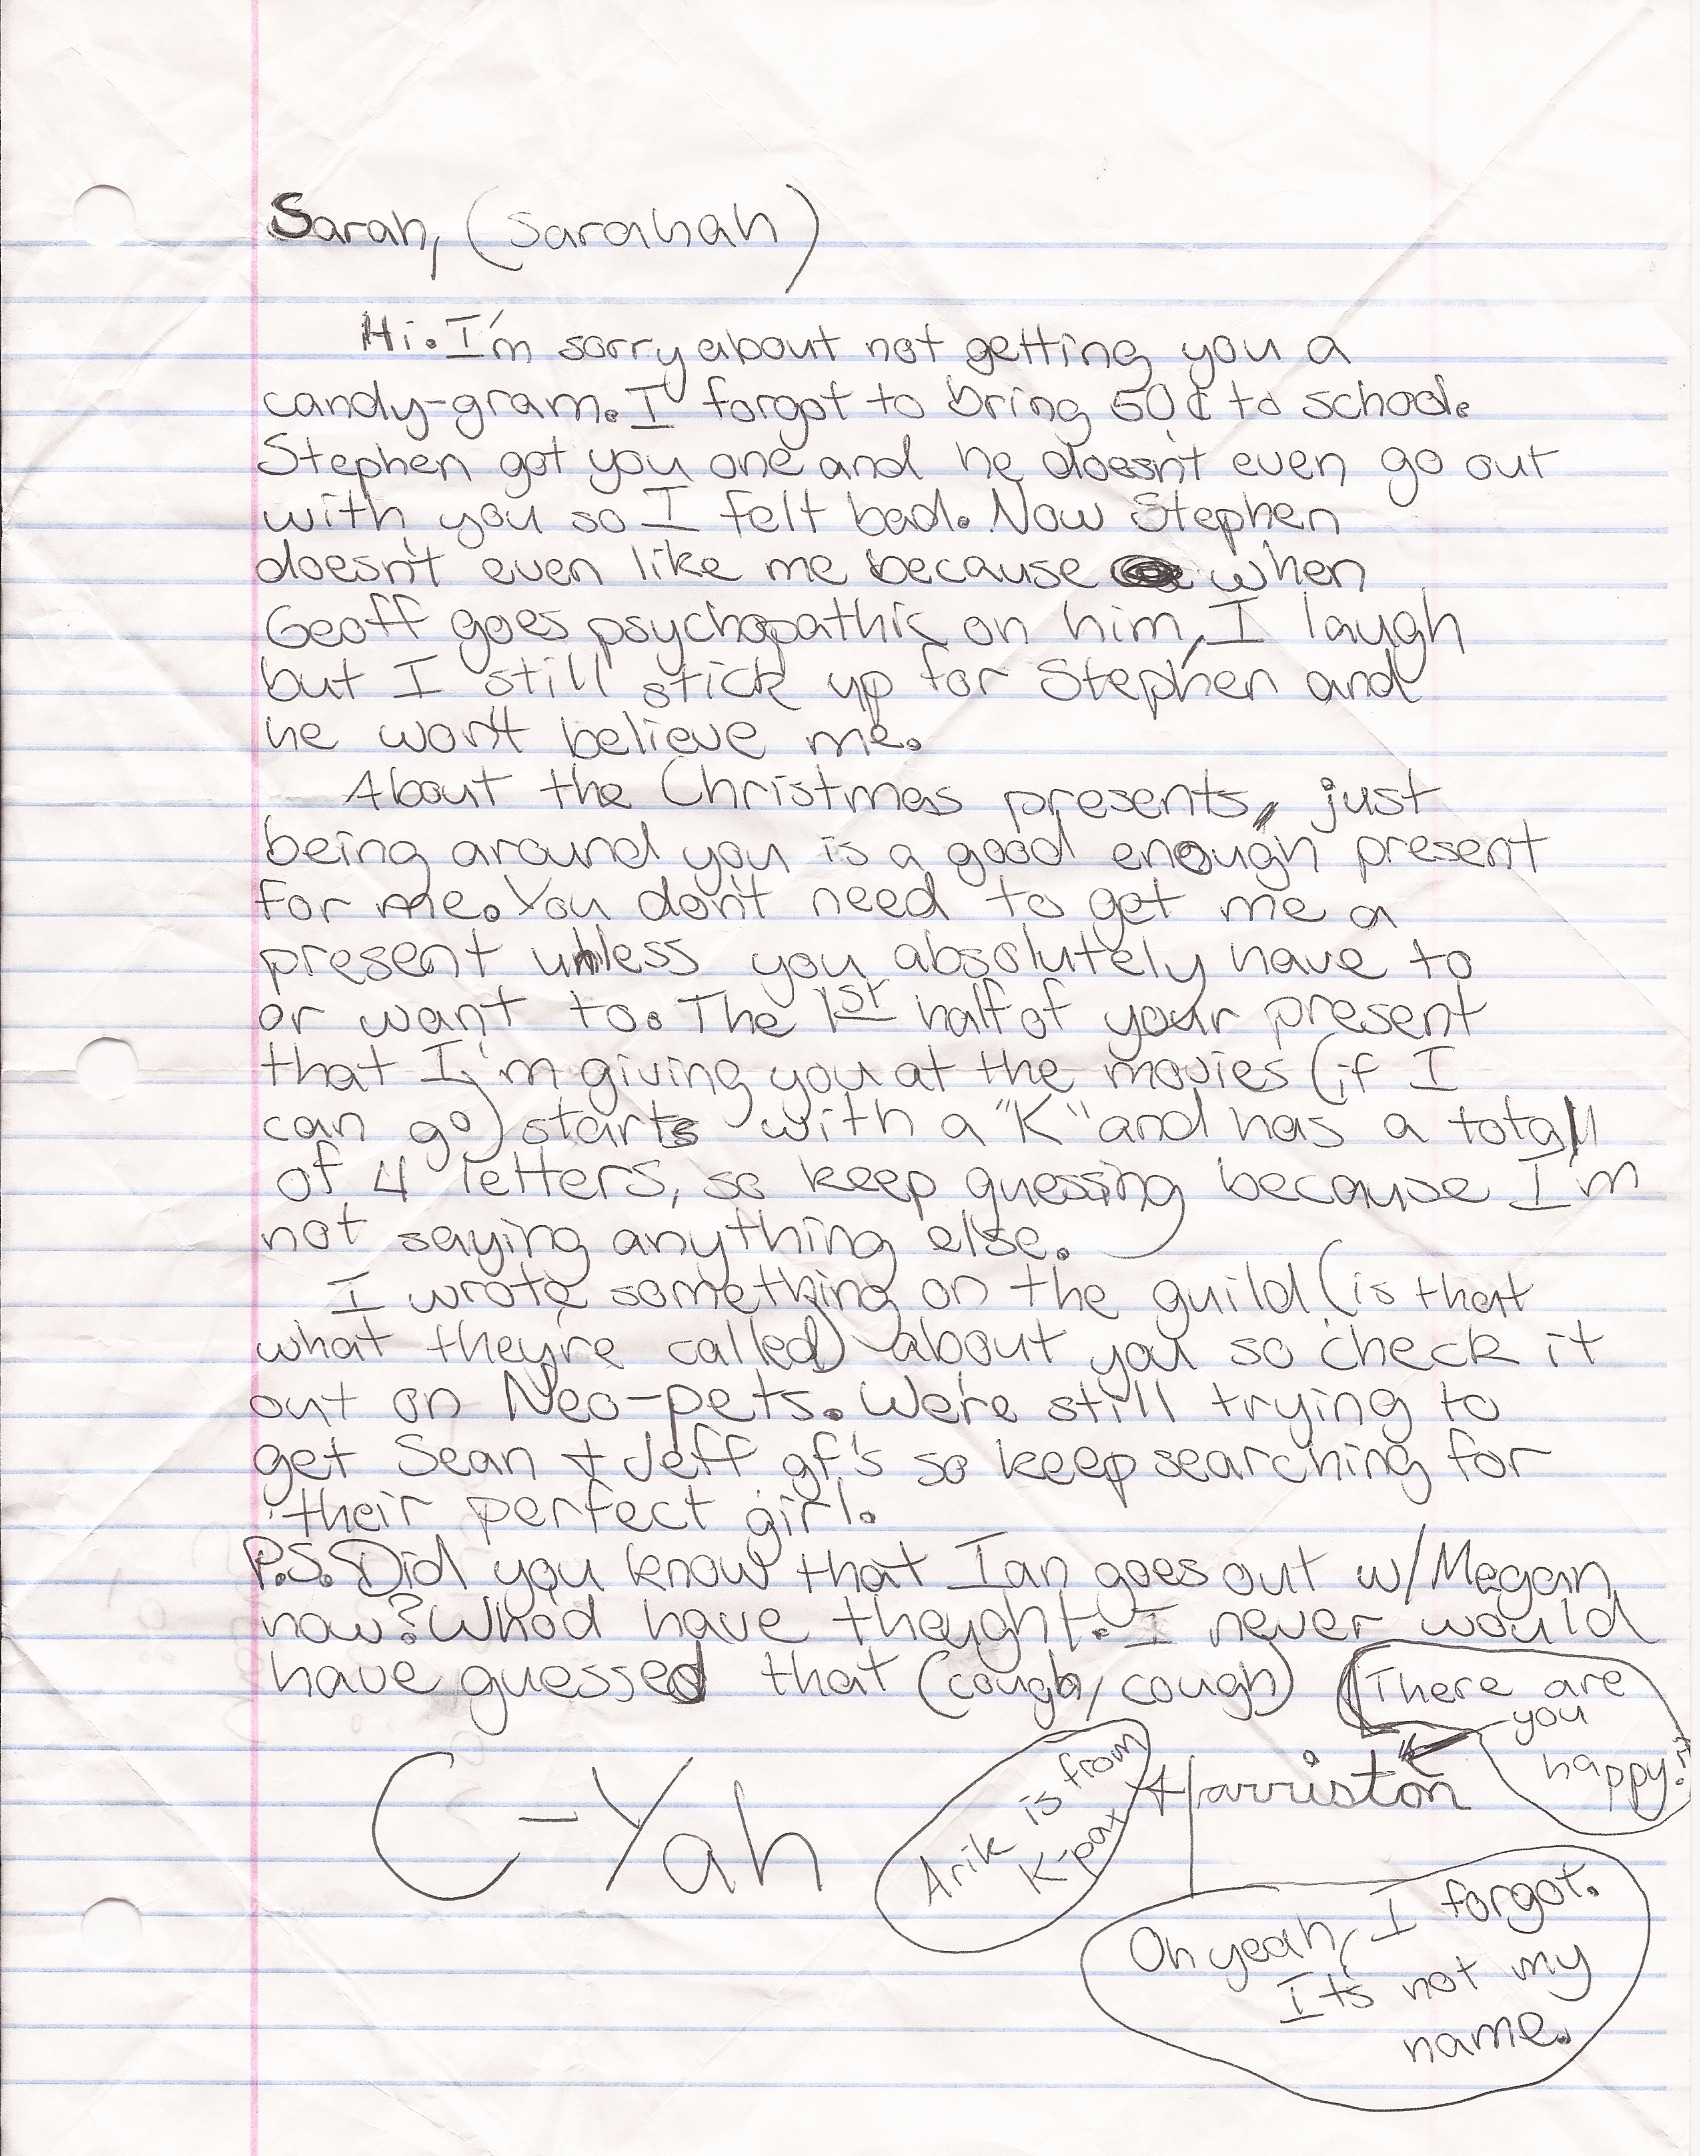 Sarah, (Sarahah)
Hi. I'm sorry about not getting you a
candy-gram. I forgot to bring 50¢ to school.
Stephen got you one and he doesn't even go out
with you so I felt bad. Now Stephen
doesn't even like me because when
Geoff goes psychopathic on him, I laugh
but I still stick up for Stephen and
he won't believe me.
About the Christmas presents, just
being around you is a good enough present
for me. You don't need to get me a
present unless you absolutely have to
or want to. The 1st half of your present
that I'm giving you at the movies (if I
can go) starts with a "K" and has a total
of 4 letters, so keep guessing because I'm
not saying anything else.
I wrote something on the guild (is that
what they're called) about you so check it
out on Neo-pets. We're still trying to
get Sean + Jeff gf's so keep searching for
their perfect girl.
P.S. Did you know that Ian goes out w/Megan
now? Who'd have thought. I never would
have guessed that (cough, cough)
There are
you
happy?!
C-Yah
Arik is from
K-pax
Harriston
Oh yeah, I forgot.
It's not my
name.